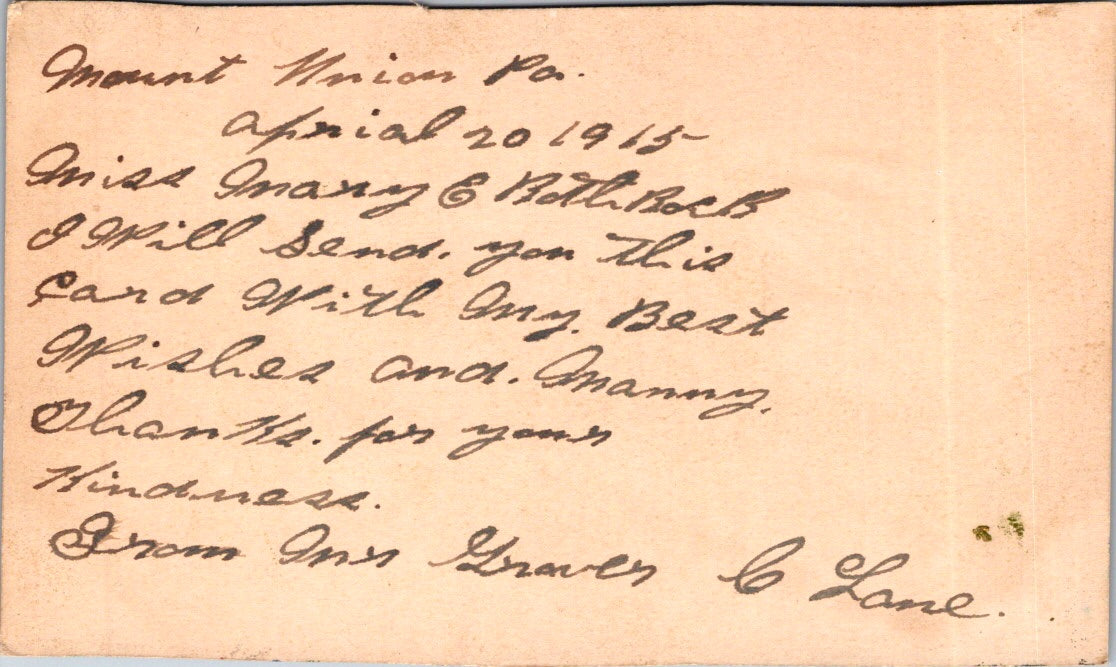 Mount Union Pa.
aprial 20 1915
Miss Mary E
I Will Send. you This
Card With My. Best
Wishes and. Manny.
Thanks. for your
Kindness.
From Mr Grover C Lane.